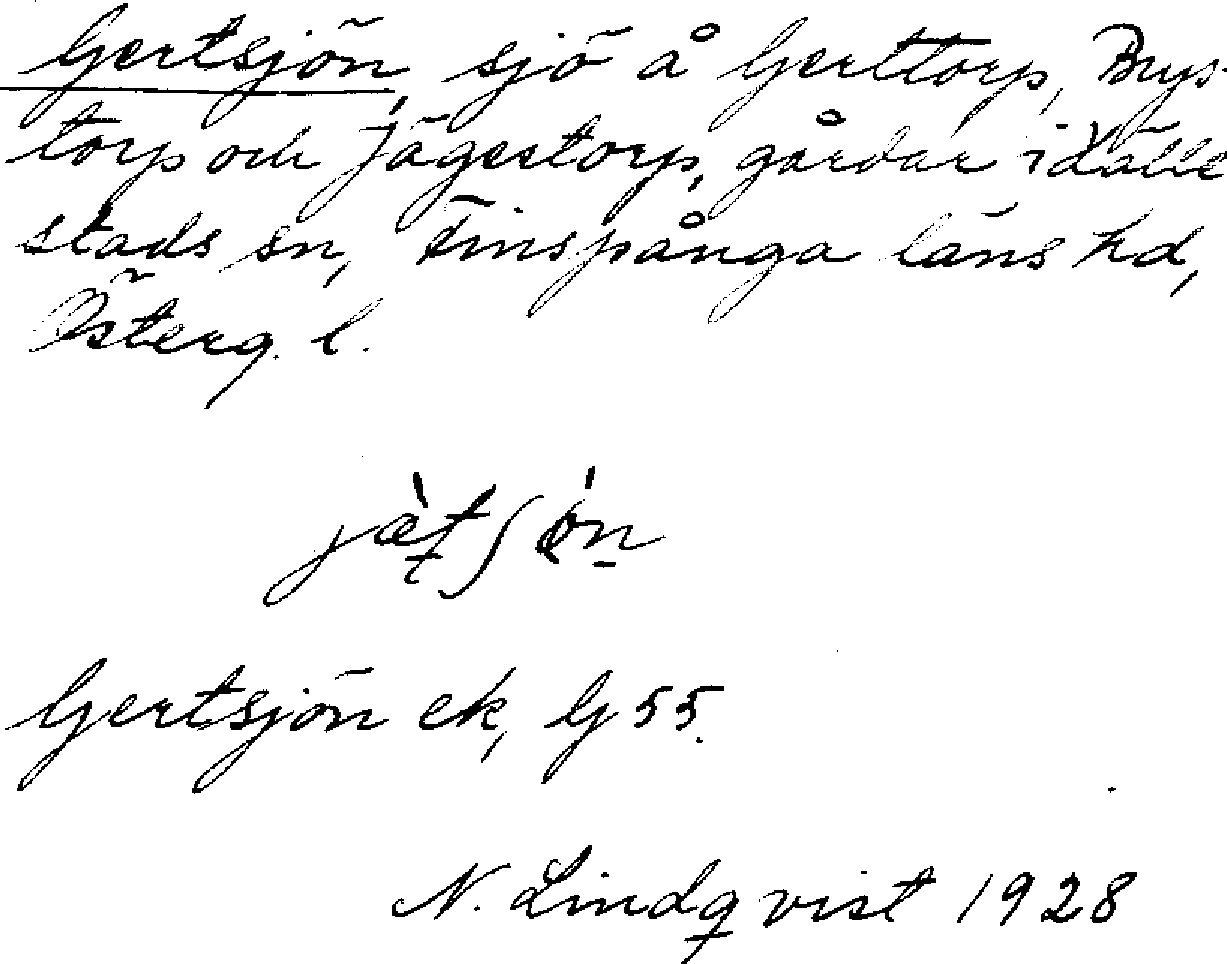 Gertsjön, sjö å Gerttorp, Brys-
torp och Jägestorp, gårdar i Hälle
stads sn, Finspånga läns hd,
Österg. l.
Gertsjön ek, G 55.
N. Lindqvist 1928